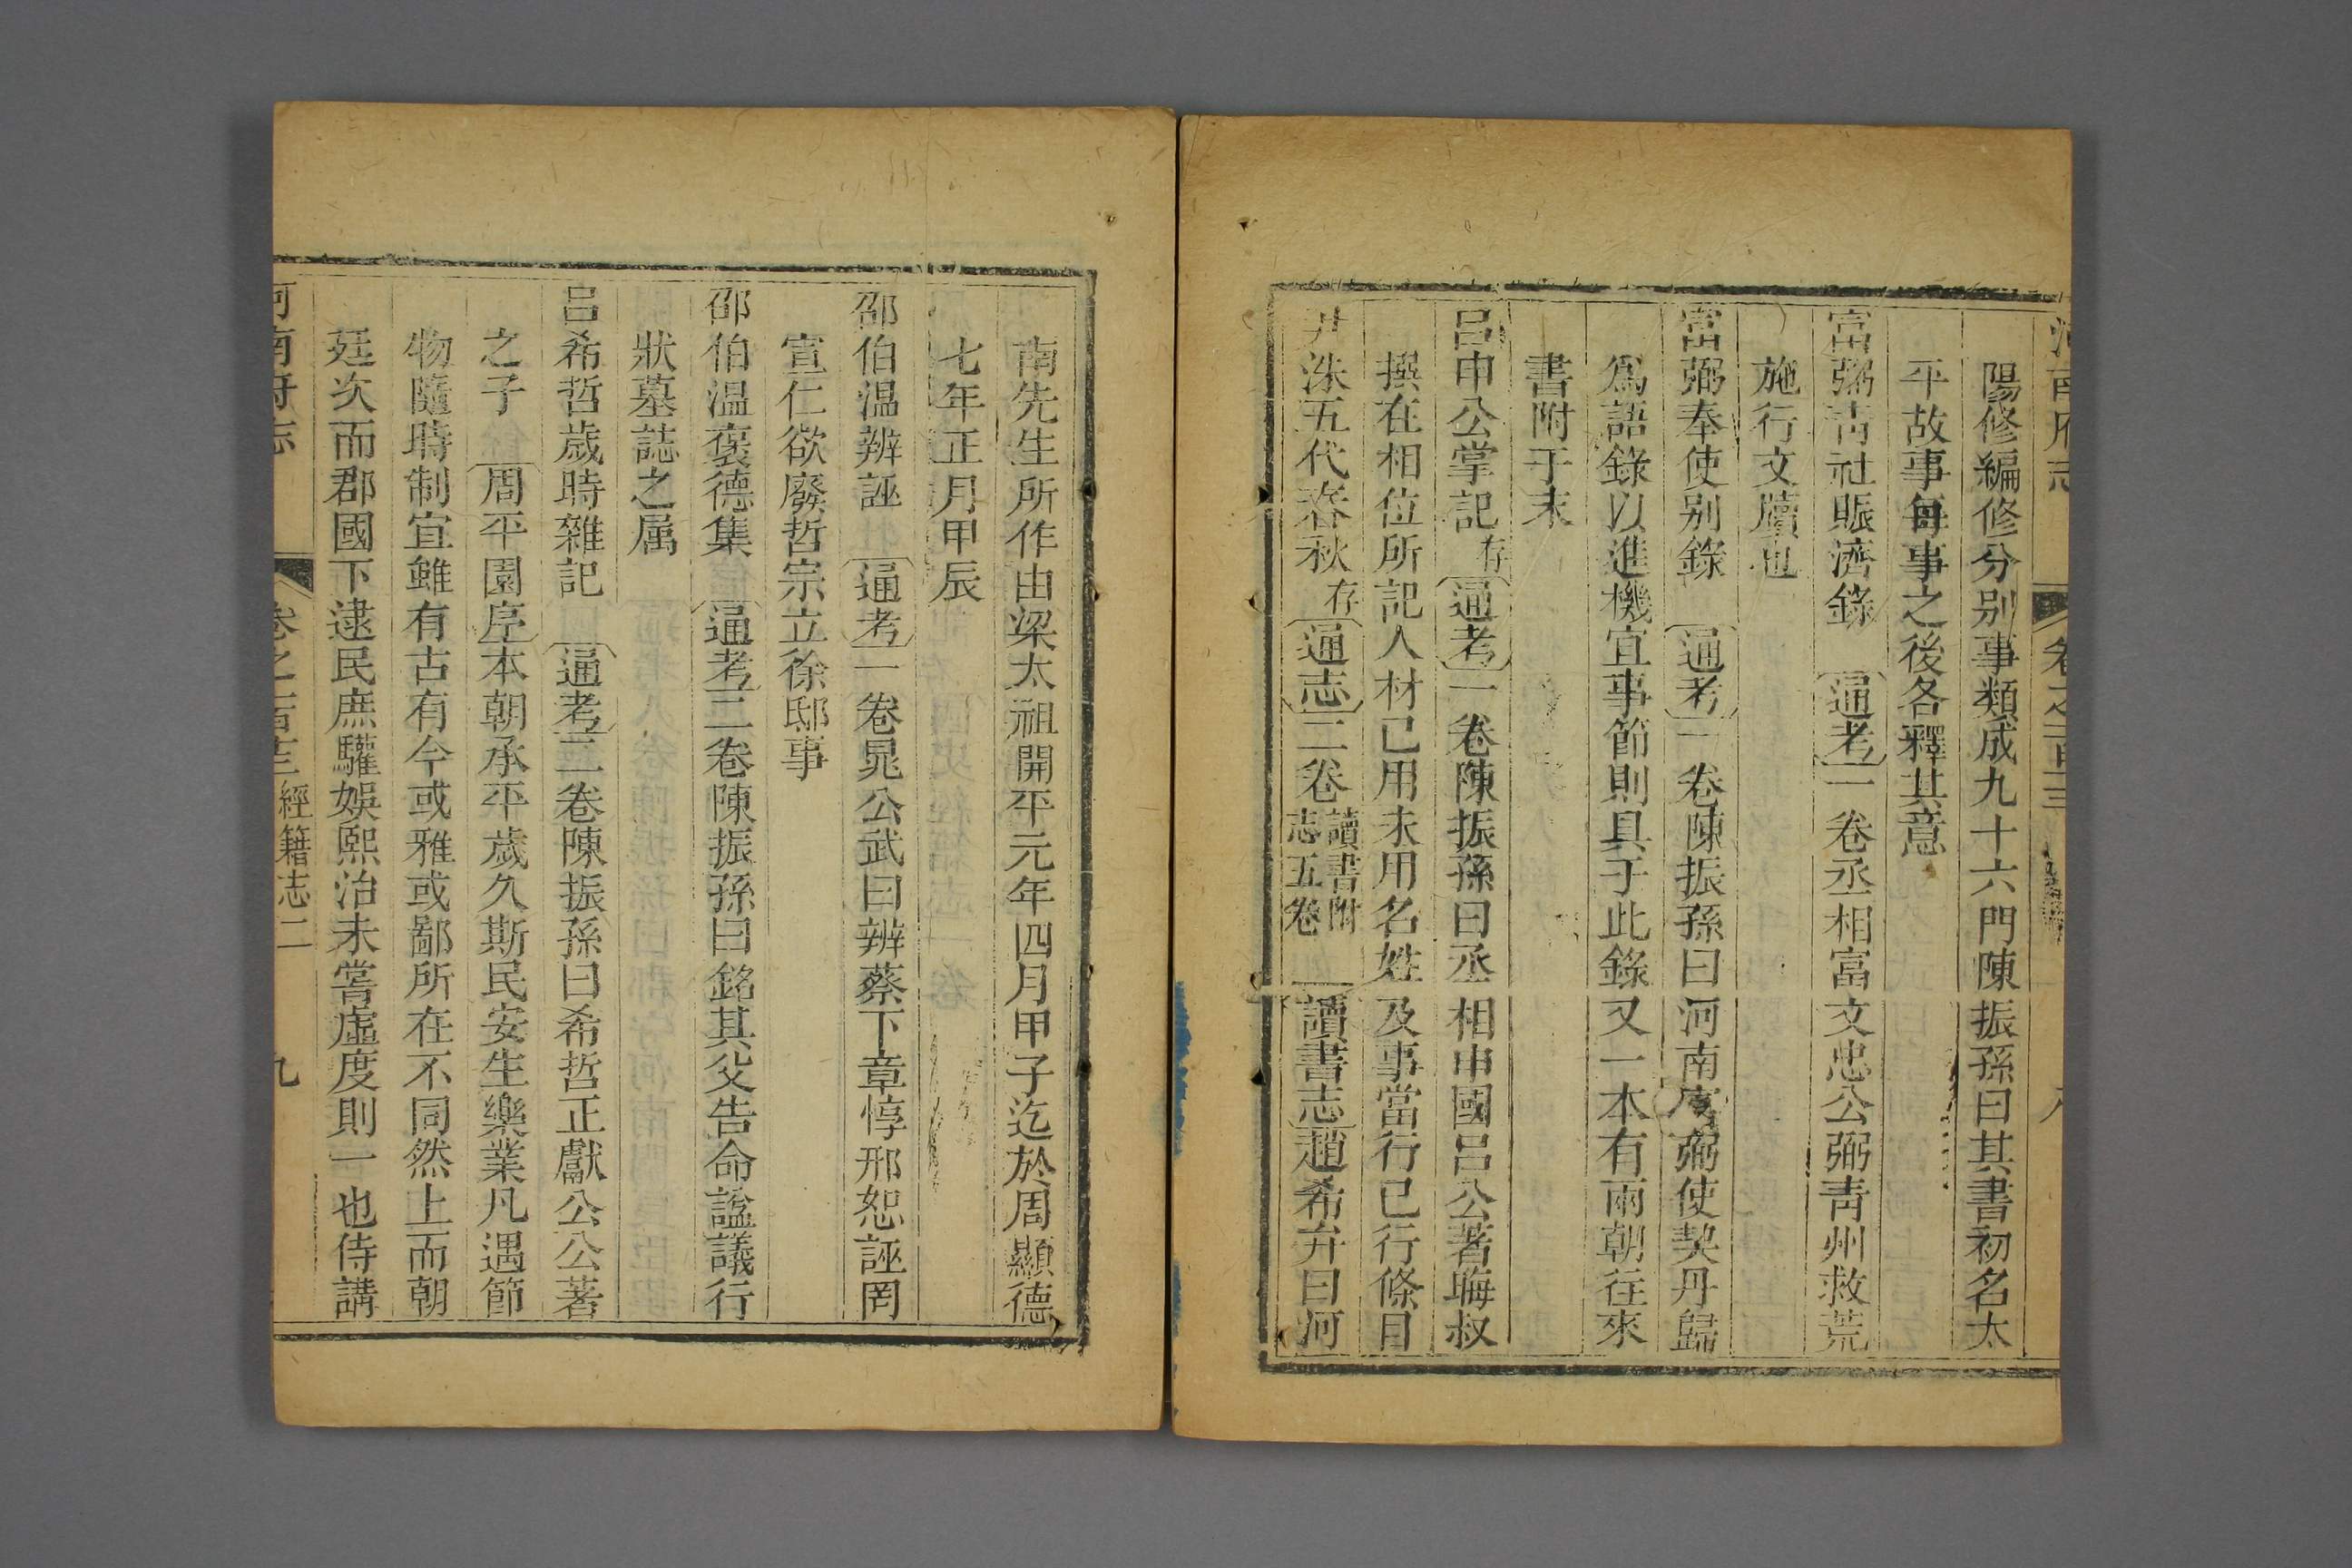 河南府志 卷之一百三 八
陽修編修分別事類成九十六門陳振孫曰其書初名太
平故事每事之後各釋其意
富弼青社賑濟錄 通考一卷丞相富文忠公弼青州救荒
施行文牘也
富弼奉使別錄 通考一卷陳振孫曰河南富弼使契丹歸
爲語錄以進機宜事節則具于此錄又一本有兩朝往來
書附于末
呂申公掌記存通考一卷陳振孫曰丞相申國呂公著晦叔
撰在相位所記人材已用未用名姓及事當行已行條目
尹洙五代春秋存通志二卷讀書附志五卷 讀書志趙希弁曰河
南先生所作由梁太祖開平元年四月甲子迄於周顯德
七年正月甲辰
邵伯溫辨誣 通考一卷晁公武曰辨蔡卞章惇邢恕誣罔
宣仁欲廢哲宗立徐邸事
邵伯溫褒德集 通考二卷陳振孫曰銘其父告命諡議行
狀墓誌之属
呂希哲歲時雜記 通考二卷陳振孫曰希哲正獻公公著
之子 周平園序本朝承平歲久斯民安生樂業凡遇節
物隨時制宜雖有古有今或雅或鄙所在不同然上而朝
廷次而郡國下逮民庶驩娛熙洽未嘗虛度則一也侍講
河南府志 卷之一百三經籍志二 九